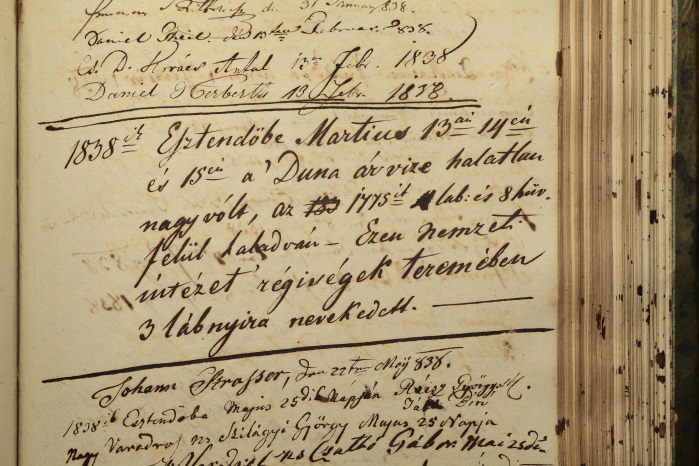 31 January 838.
Daniel den 13ten Februar 838.
Cs. D. Kovács Antal 13na Febr. 1838
Daniel Herbertis 13 Febr. 1838.
1838ik Esztendőbe Martius 13ai 14én
és 15én a' Duna árvize halatlan
nagy vólt, az 1775ik lab: és 8 hüv.
felül haladván – Ezen nemzet:
intézet régiségek teremében
3 lábnyira nevekedett.
Johann Strasser, den 22ten Máÿ 838.
1838ik Esztendőbe Majus 25dik Napján György
Nagy Varadros Szilágyi György Majus 25 Napja
Csathó Gábor Mai 25